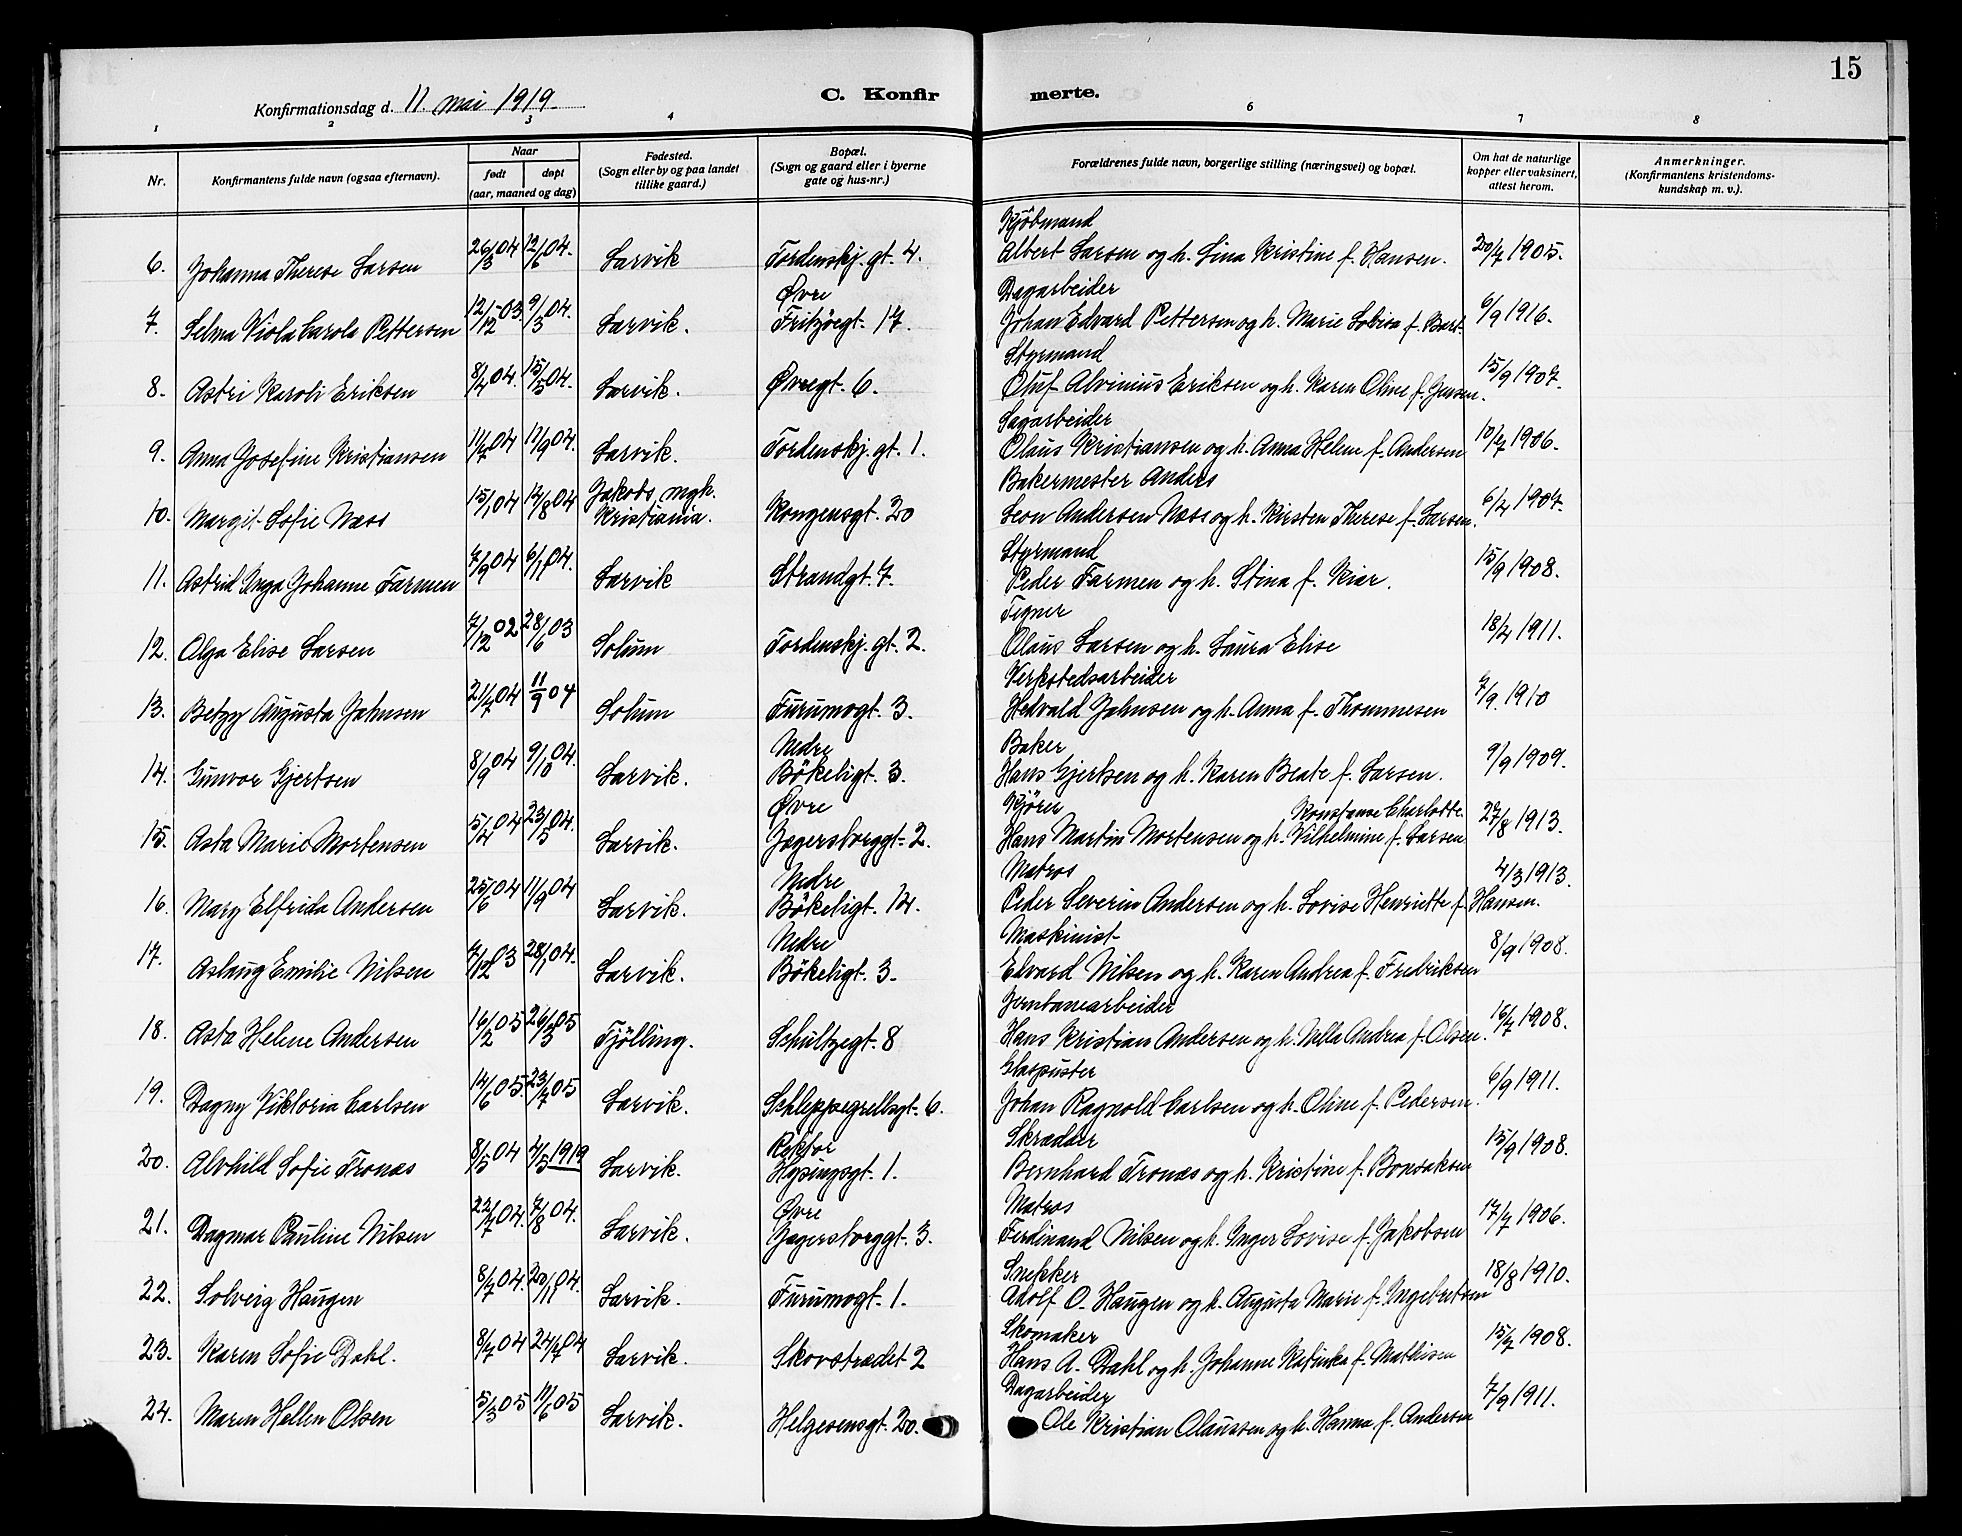 15
Konfirmationsdag d. 11. mai 1919.
C. Konfirmerte.
1 2 3 4 6 7 8
Nr.
Konfirmantens fulde navn (ogsaa efternavn).
Naar
født døpt
(aar, maaned og dag)
Fødested.
(Sogn eller by og paa landet
tillike gaard.)
Bopæl.
(Sogn og gaard eller i byerne
gate og hus-nr.)
Forældrenes fulde navn, borgerlige stilling (næringsvei) og bopæl.
Om hat de naturlige
kopper eller vaksinert,
attest herom.
Anmerkninger.
(Konfirmantens kristendoms-
kundskap m. v.).
Kjöbmand
6. Johanna Therese Larsen 26/3 04 12/6 04. Larvik Tordenskj. gt. 4. Albert Larsen og h. Lina Kristine f. Hansen. 20/7 1905.
Øvre Dagarbeider
7. Selma Viola Carola Pettersen 12/12-03. 9/3 04. Larvik. Fritzöegt. 17. Johan Edvard Pettersen og h. Marie Lovisa f. Bart. 6/9 1916.
Styrmand
8. Astri Karoli Eriksen 8/4 04. 15/5 04. Larvik. Øvregt. 6. Oluf Alvinius Eriksen og h. Karen Oline f. Jensen. 15/9 1907.
Sagarbeider
9. Anna Josefine Kristiansen 11/7 04 11/9 04. Larvik. Tordenskj. gt. 1. Olaus Kristiansen og h. Anna Helene f. Andersen 10/7 1906.
Jakobs mgh. Bakermester Anders
10. Margit Sofie Næss 15/1 04 14/8 04 Kristiania. Kongensgt. 20 Leon Andersen Næss og h. Kirsten Therese f. Larsen. 6/4 1907.
Styrmand
11. Astrid Inga Johanne Farmen 7/9 04 6/11 04. Larvik Strandgt. 7. Peder Farmen og h. Stina f. Kiær. 15/9 1908.
Tegner
12. Alga Elise Larsen 7/12 02 28/6 03 Solum Tordenskj. gt. 2. Olaus Larsen og h. Laura Elise 18/4 1911.
Verkstedsarbeider
13. Betzy Augusta Jahnsen 21/7 04 11/9 04 Solum Furumogt. 3. Hedvald Jahnsen og h. Anna f. Thommesen 7/9. 1910
Nedre Baker
14. Gunvor Gjertsen 8/9 04 9/10 04. Larvik. Bökeligt. 3. Hans Gjertsen og h. Karen Beate f. Larsen. 9/9 1909.
Øvre Kjörer Konstanse Charlotte
15. Asta Marie Mortensen 5/4 04 23/5 04. Larvik. Jegersborggt. 2. Hans Martin Mortensen og h. Vilhelmine f. Larsen 27/8 1913.
Nedre Matros
16. Mary Elfrida Andersen 25/6 04 11/9 04 Larvik. Bökeligt. 14. Peder Severin Andersen og h. Lovise Henriette f. Hansen. 4/3 1913.
Nedre Maskinist
17. Aslaug Emilie Nilsen 7/12 03 28/1 04. Larvik. Bökeligt. 3. Edvard Nilsen og h. Karen Andrea f. Fredriksen 8/9 1908.
Jernbanearbeider
18. Asta Helene Andersen 16/2 05 26/3 05 Tjölling. Schultzegt. 8 Hans Kristian Andersen og h. Nella Andrea f. Olsen. 16/7 1908.
Glaspuster
19. Dagny Viktoria Carlsen 14/6 05. 23/7 05 Larvik. Schleppegrellsgt. 6. Johan Ragnold Carlsen og h. Oline f. Pedersen. 6/9 1911.
Rektor Skrædder
20. Alvhild Sofie Tronæs 8/5 04 4/5 1919 Larvik. Hysingsgt. 1. Bernhard Tronæs og h. Kristine f. Bonsaksen 15/9 1908.
Øvre Matros
21. Dagmar Pauline Nilsen 22/7 04. 7/8 04. Larvik. Jegersborggt. 3. Ferdinand Nilsen og h. Inger Lovise f. Jakobsen 17/7 1906.
Snekker
22. Solveig Haugen 8/7 04. 20/11 04. Larvik. Furumogt. 1. Adolf O. Haugen og h. Augusta Marie f. Ingebretsen 18/8 1910.
Skomaker
23. Karen Sofie Dahl. 8/7 04 24/7 04 Larvik. Skovstrædet 2 Hans A. Dahl og h. Johanne Katinka f. Mathisen 15/7 1908.
Dagarbeider
24. Maren Hellen Olsen 5/3 05 11/6 05 Larvik. Helgesensgt. 20. Ole Kristian Olaussen og h. Hanna f. Andersen 7/9 1911.